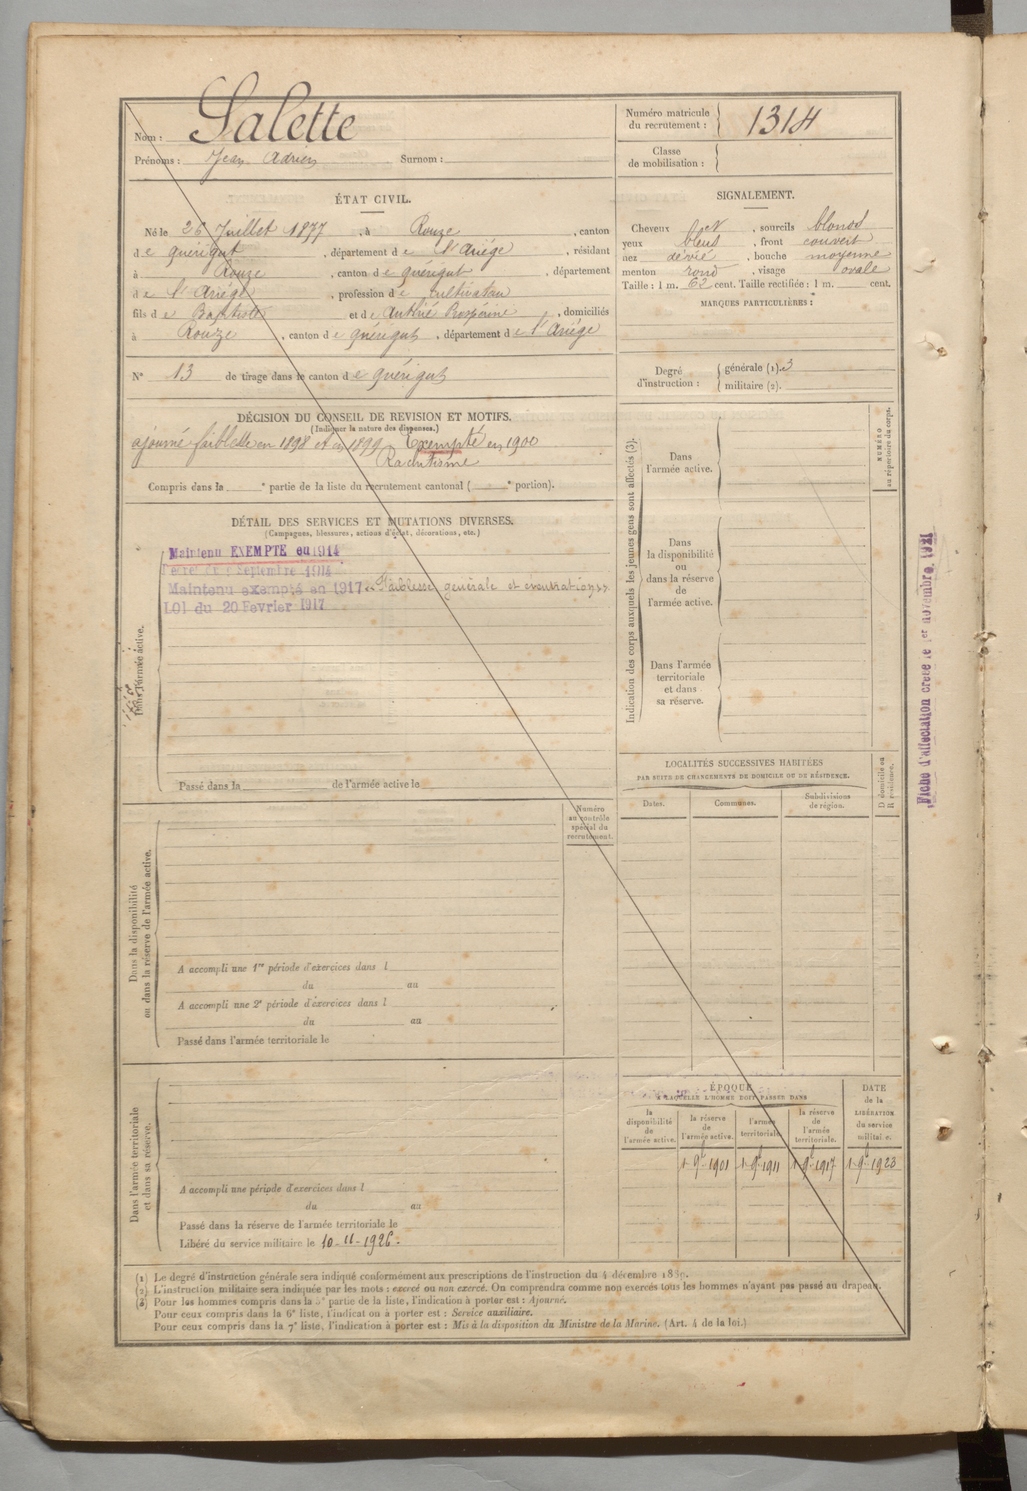 Nom : Salette
Prénoms : Jean Adrien Surnom :
Numéro matricule
du recrutement : 1314
Classe
de mobilisation :
ÉTAT CIVIL.
Né le 26 Juillet 1877, à Rouze, canton
de quérigut, département de l'Ariége, résidant
à Rouze, canton de quérigut, département
de l'Ariége, profession de cultivateur
fils de Baptiste et de Authié Prospérine, domiciliés
à Rouze, canton de quérigut, département de l'Ariége
N° 13 de tirage dans le canton de quérigut
SIGNALEMENT.
Cheveux et, sourcils blonds
yeux bleus, front couvert
nez dévié, bouche moyenne
menton rond, visage ovale
Taille : 1 m. 62 cent. Taille rectifiée : 1 m. cent.
MARQUES PARTICULIÈRES :
Degré
d'instruction :
générale (1). 3
militaire (2).
DÉCISION DU CONSEIL DE REVISION ET MOTIFS.
(Indiquer la nature des dispenses.)
ajourné faiblesse en 1898 et en 1899 Exempté en 1900
Rachitisme
Compris dans la e partie de la liste du recrutement cantonal ( e portion).
DÉTAIL DES SERVICES ET MUTATIONS DIVERSES.
(Campagnes, blessures, actions d'éclat, décorations, etc.)
Dans l'armée active.
Maintenu EXEMPTÉ en 1914
Décret du 9 Septembre 1914
Maintenu exempté en 1917 «Faiblesse générale et énucléation»
LOI du 20 Fevrier 1917
Passé dans la de l'armée active le
Indication des corps auxquels les jeunes gens sont affectés (3).
Dans
l'armée active.
Dans
la disponibilité
ou
dans la réserve
de
l'armée active.
Dans l'armée
territoriale
et dans
sa réserve.
NUMÉRO
au répertoire du corps.
Fiche d'affectation créée le 1er novembre 1921
LOCALITÉS SUCCESSIVES HABITÉES
PAR SUITE DE CHANGEMENTS DE DOMICILE OU DE RÉSIDENCE.
Dates. Communes. Subdivisions
de région.
D domicile ou
R résidence.
Numéro
au contrôle
spécial du
recrutement.
Dans la disponibilité
ou dans la réserve de l'armée active.
A accompli une 1re période d'exercices dans l
du au
A accompli une 2e période d'exercices dans l
du au
Passé dans l'armée territoriale le
Dans l'armée territoriale
et dans sa réserve.
A accompli une période d'exercices dans l
du au
Passé dans la réserve de l'armée territoriale le
Libéré du service militaire le 10-11-1926.
ÉPOQUE
A LAQUELLE L'HOMME DOIT PASSER DANS
la
disponibilité
de
l'armée active.
la réserve
de
l'armée active.
l'armée
territoriale.
la réserve
de
l'armée
territoriale.
DATE
de la
LIBÉRATION
du service
militaire.
1 9b 1901 1 9b 1911 1 9b 1917 1 9b 1923
(1) Le degré d'instruction générale sera indiqué conformément aux prescriptions de l'instruction du 4 décembre 1889.
(2) L'instruction militaire sera indiquée par les mots : exercé ou non exercé. On comprendra comme non exercés tous les hommes n'ayant pas passé au drapeau.
(3) Pour les hommes compris dans la 5e partie de la liste, l'indication à porter est : Ajourné.
Pour ceux compris dans la 6e liste, l'indication à porter est : Service auxiliaire.
Pour ceux compris dans la 7e liste, l'indication à porter est : Mis à la disposition du Ministre de la Marine. (Art. 4 de la loi.)